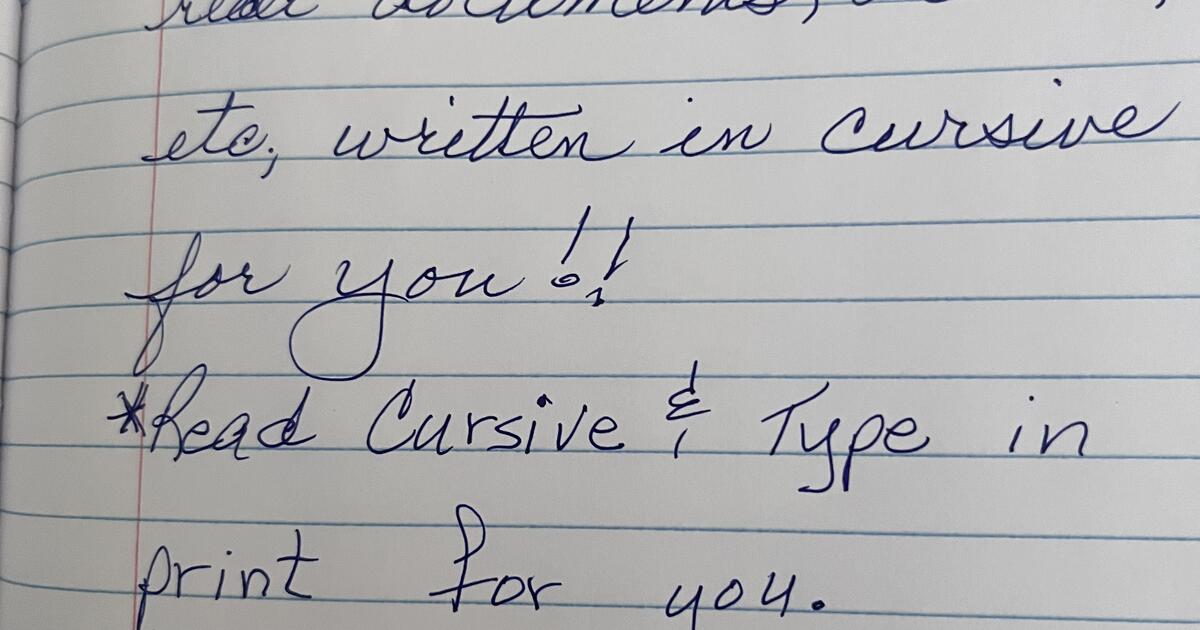 read documents,
etc, written in cursive
for you!!
*Read Cursive & Type in
print for you.